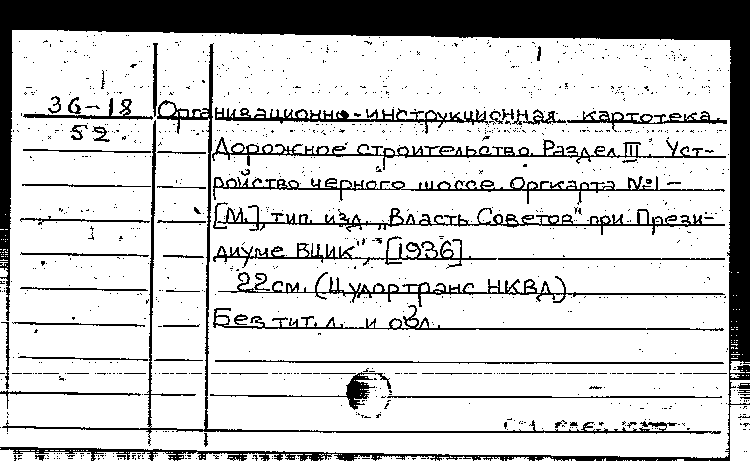 36-18 Организационно-инструкционная картотека.
52
Дорожное строительство. Раздел III. Уст-
ройство черного шоссе. Оргкарта №1-
[М.], тип. изд. „Власть Советов" при Прези-
диуме ВЦИК", [1936].
22 см. (Цудортранс НКВД).
Без тит. л. и обл.